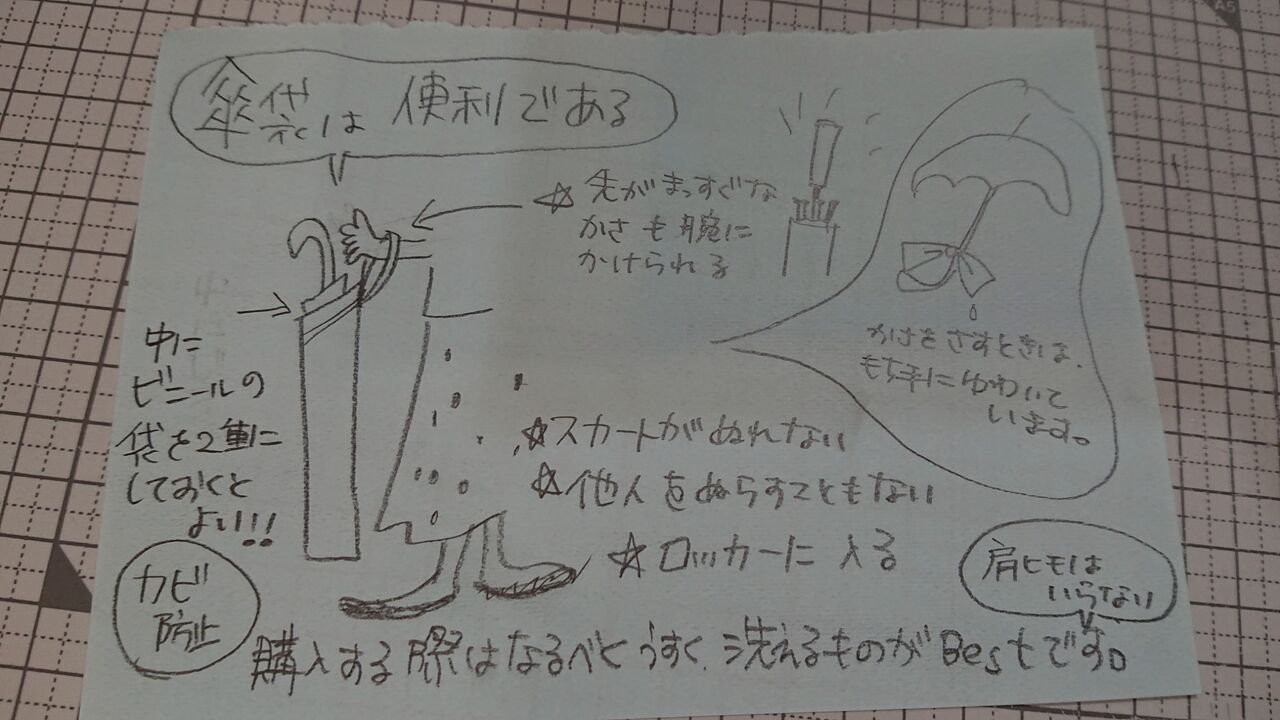 傘袋は便利である
☆先がまっすぐな
かさも腕に
かけられる
かさをさすときは、
もち手にゆわいて
います。
中に
ビニールの
袋を2重に
しておくと
よい!!
☆スカートがぬれない
☆他人をぬらすこともない
☆ロッカーに入る
カビ
防止
肩ヒモは
いらない
購入する際はなるべくうすく、洗えるものがBestです。
A5